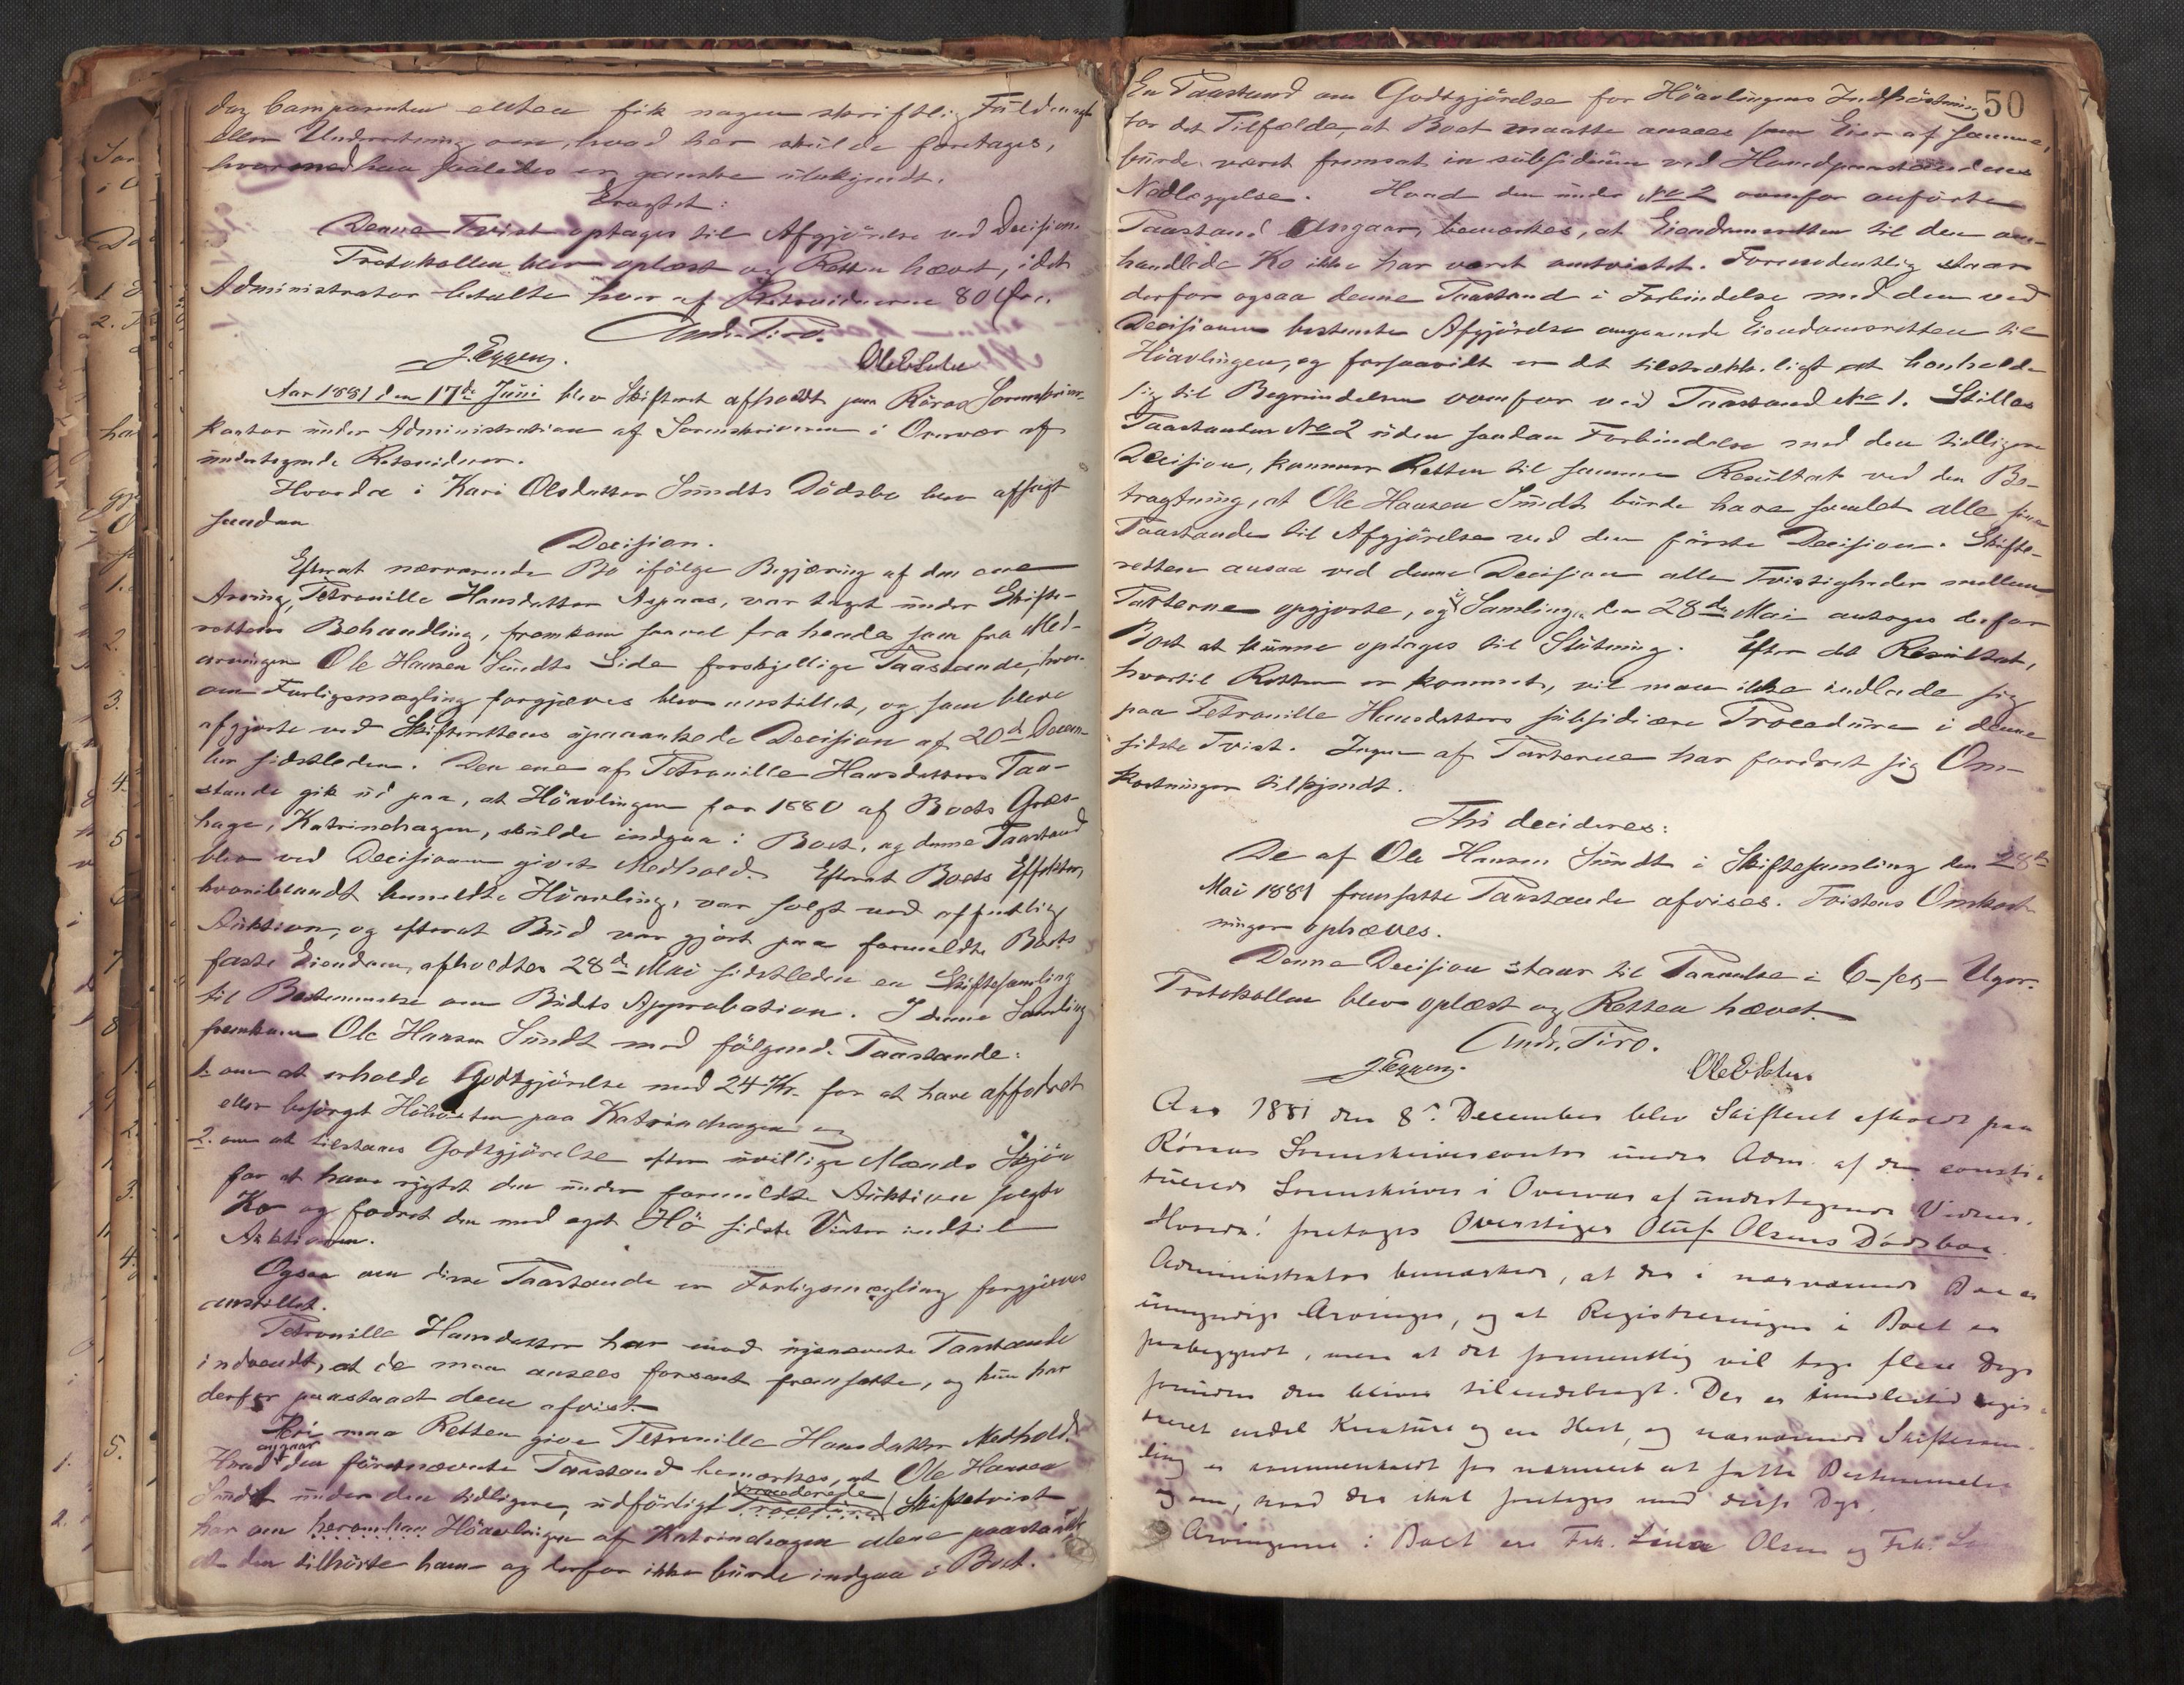 dog Comparenten enten fik nogen skriftlig Fuldmagt
eller Underretning om, hvad her skulde foretages,
hvormed han saaledes er ganske ubekjendt.
Eragtet:
Denne Tvist optages til Afgjörelse ved Decision.
Protokollen blev oplæst og Retten hævet, idet
Administrator betalte hver af Retsvidnerne 80 Öre.
Andr. Tiro.
J. Eggen.
Aar 1881 den 17de Juni blev Skifteret afholdt paa Röros Sorenskriver-
kontor under Administration af Sorenskriveren i Overvær af
undertegnede Retsvidner.
Hvorda i Kari Olsdatter Sundts Dödsbo blev afsagt
saadan
Decision.
Efterat nærværende Bo ifölge Begjæring af den ene
Arving, Petronille Hansdatter Aspaas, var taget under Skifte-
rettens Behandling, fremkom saavel fra hendes som fra Med-
arvingen Ole Hansen Sundts Side forskjellige Paastande, hvor-
om Forligsmægling forgjæves blev anstillet, og som bleve
afgjorte ved Skifterettens upaaankede Decision af 20de Decem-
ber sidstleden. Den ene af Petronille Hansdatters Paa-
stande gik ud paa, at Höavlingen for 1880 af Boets Græs-
hage, Katrinehagen, skulde indgaa i Boet, og denne Paastand
blev ved Decisionen givet Medhold. Efterat Boets Effekter,
hvoriblandt bemeldte Höavling, var solgt ved offentlig
Auktion, og efterat Bud var gjort paa formeldte Boets
faste Eiendom, afholdtes 28de Mai sidstleden en Skiftesamling
til Bestemmelse om Budets Approbation. I denne Samling
fremkom Ole Hansen Sundt med fölgende Paastande:
1. om at erholde Godtgjörelse med 24 Kr. for at have
eller besörget Höhösten paa Katrinehagen og
2. om at tilstaaes Godtgjörelse efter uvillige Mænds Skjön
for at have rögtet den under formeldte Auktion solgte
Ko og fodret den med eget Hö sidste Vinter indtil
Auktionen.
Ogsaa om disse Paastande er Forligsmægling forgjæves
anstillet.
Petronille Hansdatter har mod nysnævnte Paastande
indvendt, at de maa ansees forsent fremsatte, og hun har
derfor paastaaet dem afvist.
Heri maa Retten give Petronille Hansdatter Medhold.
angaar
Hvad den förstnævnte Paastand bemærkes, at Ole Hansen
procederede
Sundt under den tidligere, udförligt Skiftetvist
har om Höavlingen af Katrinehagen alene paastaaet
at den tilhörte ham og derfor ikke burde indgaa i Boet.
50
En Paastand om Godtgjörelse for Höavlingens Indhöstning
for det Tilfælde, at Boet maatte ansees som Eier af samme,
burde været fremsat in subsidium ved Hovedpaastandens
Nedlæggelse. Hvad den under No 2 ovenfor anförte
Paastand angaar, bemærkes, at Eiendomsretten til den om-
handlede Ko ikke har været omtvistet. Forenodentlig staar
derfor ogsaa denne Paastand i Forbindelse med den ved
Decisionen bestemte Afgjörelse angaaende Eiendomsretten til
Höavlingen, og forsaavidt er det tilstrækkeligt at henholde
sig til Begrundelsen ovenfor ved Paastand No 1. Stilles
Paastanden No 2 uden saadan Forbindelse med den tidligere
Decision, kommer Retten til samme Resultat ved den Be-
tragtning, at Ole Hansen Sundt burde have samlet alle sine
Paastande til Afgjörelse ved den förste Decision. Skifte-
retten ansaa ved denne Decision alle Tvistigheder mellem
Parterne opgjorte, og i Samling den 28de Mai antoges derfor
Boet at kunne optages til Slutning. Efter det Resultat,
hvortil Retten er kommet, vil man ikke indlade sig
paa Petronille Hansdatters subsidiære Procedure i denne
sidste Tvist. Ingen af Parterne har fordret sig Om-
kostninger tilkjendt.
Thi decideres:
De af Ole Hansen Sundt i Skiftesamling den 28de
Mai 1881 fremsatte Paastande afvises. Tvistens Omkost-
ninger ophæves.
Denne Decision staar til Paaanke i 6 - sex - Uger.
Protokollen blev oplæst og Retten hævet.
Andr. Tiro.
J. Eggen.
Aar 1881 den 8de December blev Skifteret afholdt paa
Röraas Sorenskrivercontor under Adm. af den consti-
tuerede Sorenskriver i Overvær af undertegnede Vidner.
Hvorda: foretages Overstiger Oluf Olsens Dödsboe.
Administrator bemærkede, at der i nærværende Bo er
umyndige Arvinger, og at Registreringen i Boet er
paabegyndt, men at det formentlig vil tage flere Dage
forinden den bliver tilendebragt. Der er imidlertid regis-
treret endel Kreature og en Hest, og nærværende Skiftesam-
ling er sammenkaldt for nærmere at fatte Bestemmelse
om, hvad der skal foretages med disse Dyr.
Arvingerne i Boet ere Frk. Lina Olsen og Frk.